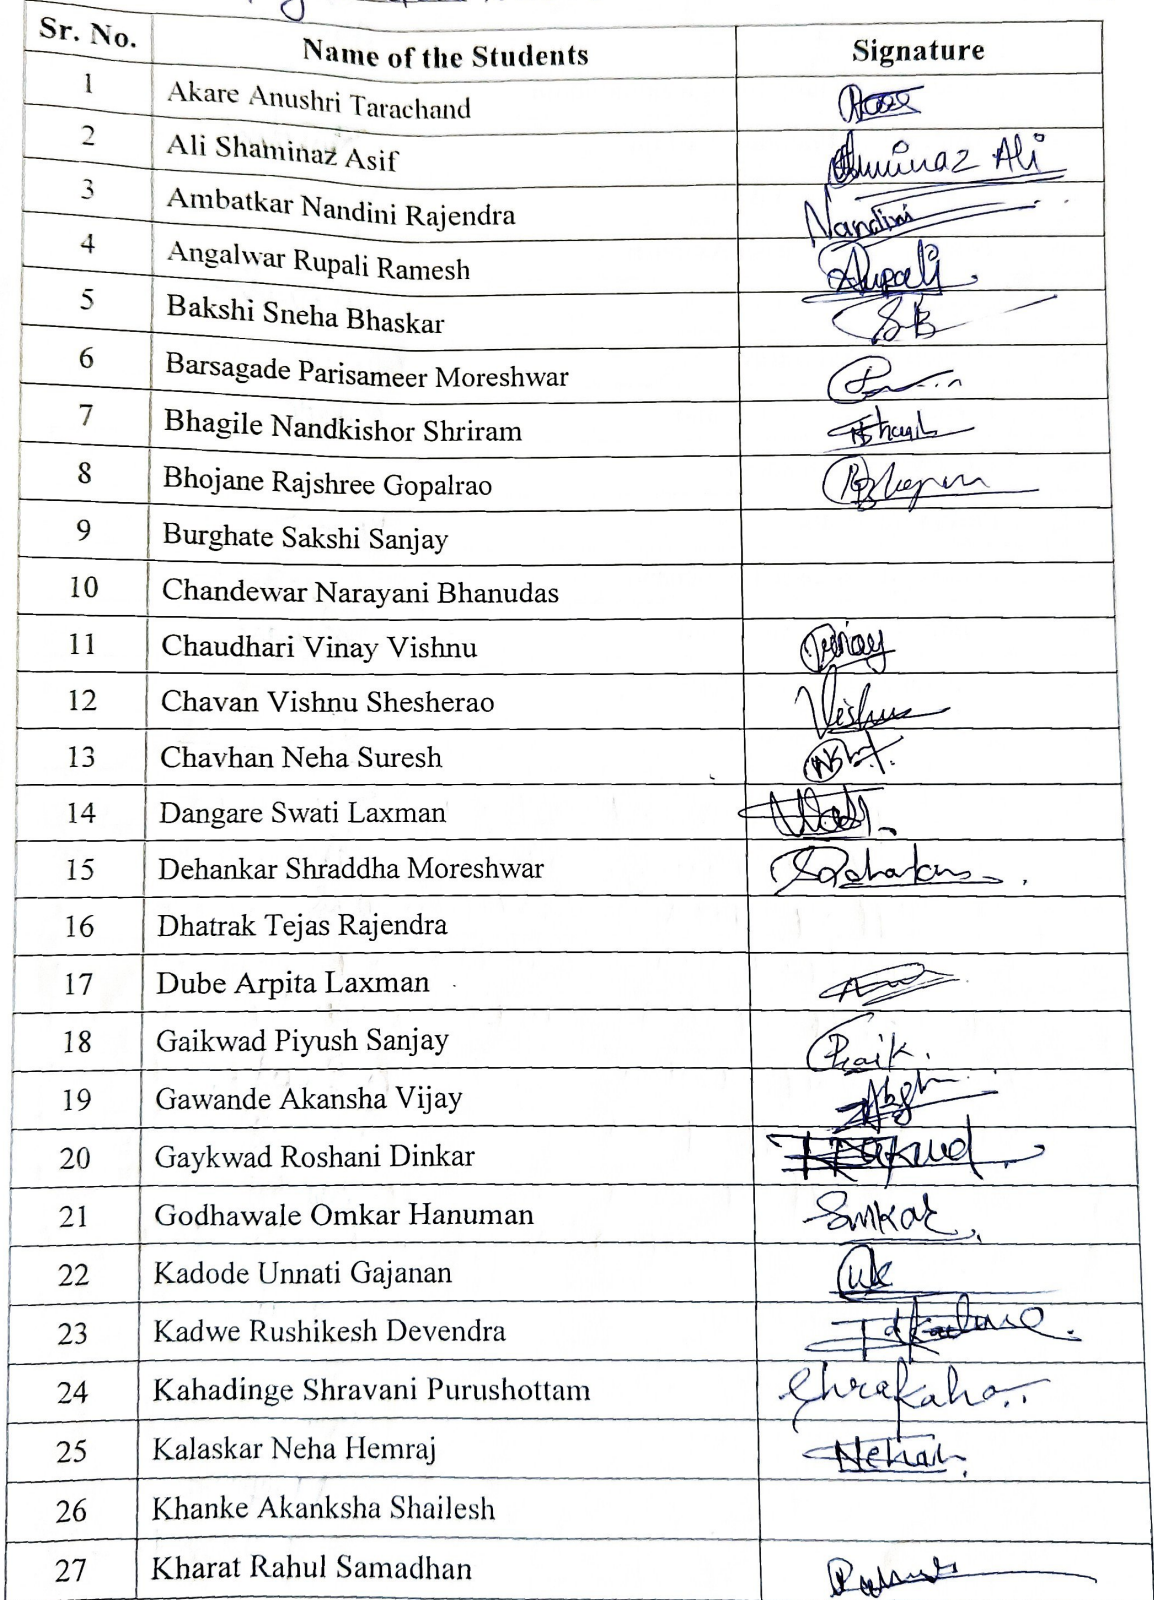 Sr. No. Name of the Students Signature
1 Akare Anushri Tarachand
2 Ali Shaminaz Asif Ali
3 Ambatkar Nandini Rajendra Nandini
4 Angalwar Rupali Ramesh Rupali
5 Bakshi Sneha Bhaskar SB
6 Barsagade Parisameer Moreshwar
7 Bhagile Nandkishor Shriram
8 Bhojane Rajshree Gopalrao
9 Burghate Sakshi Sanjay
10 Chandewar Narayani Bhanudas
11 Chaudhari Vinay Vishnu Vinay
12 Chavan Vishnu Shesherao Vishnu
13 Chavhan Neha Suresh
14 Dangare Swati Laxman
15 Dehankar Shraddha Moreshwar
16 Dhatrak Tejas Rajendra
17 Dube Arpita Laxman
18 Gaikwad Piyush Sanjay
19 Gawande Akansha Vijay
20 Gaykwad Roshani Dinkar
21 Godhawale Omkar Hanuman Omkar
22 Kadode Unnati Gajanan
23 Kadwe Rushikesh Devendra
24 Kahadinge Shravani Purushottam
25 Kalaskar Neha Hemraj
26 Khanke Akanksha Shailesh
27 Kharat Rahul Samadhan